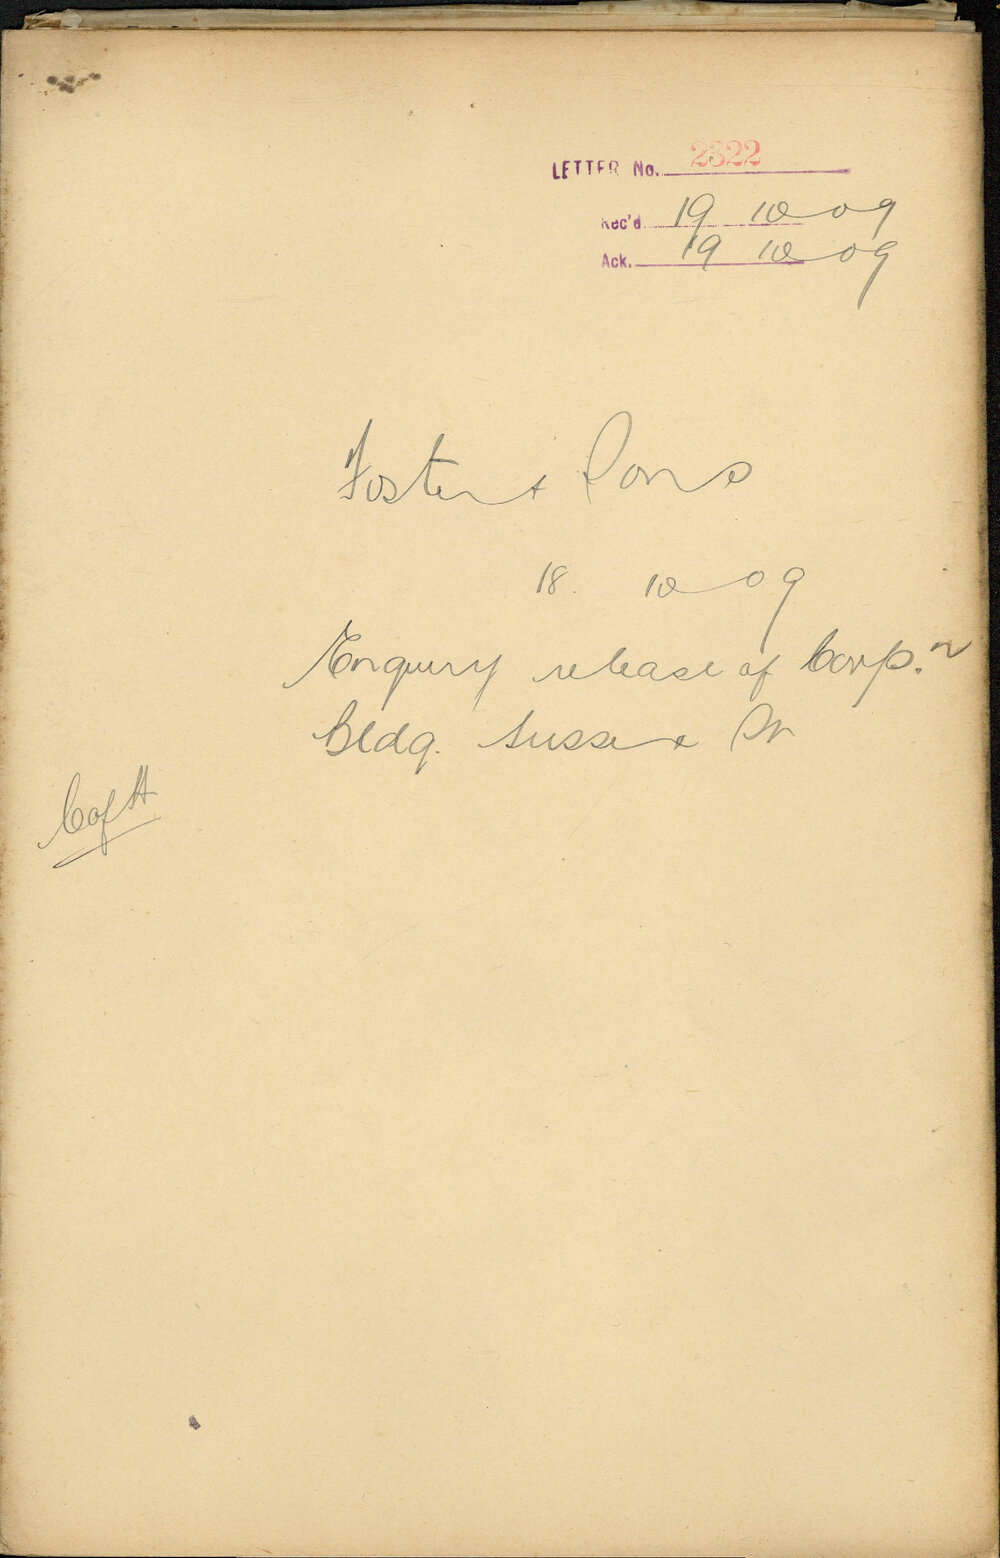 LETTER No. 2622
Rec'd 19 10 09
Ack. 19 10 09
Foster & Sons
18. 10 09
Enquiry release of Corp.n
Bldg. Sussex St
C of H